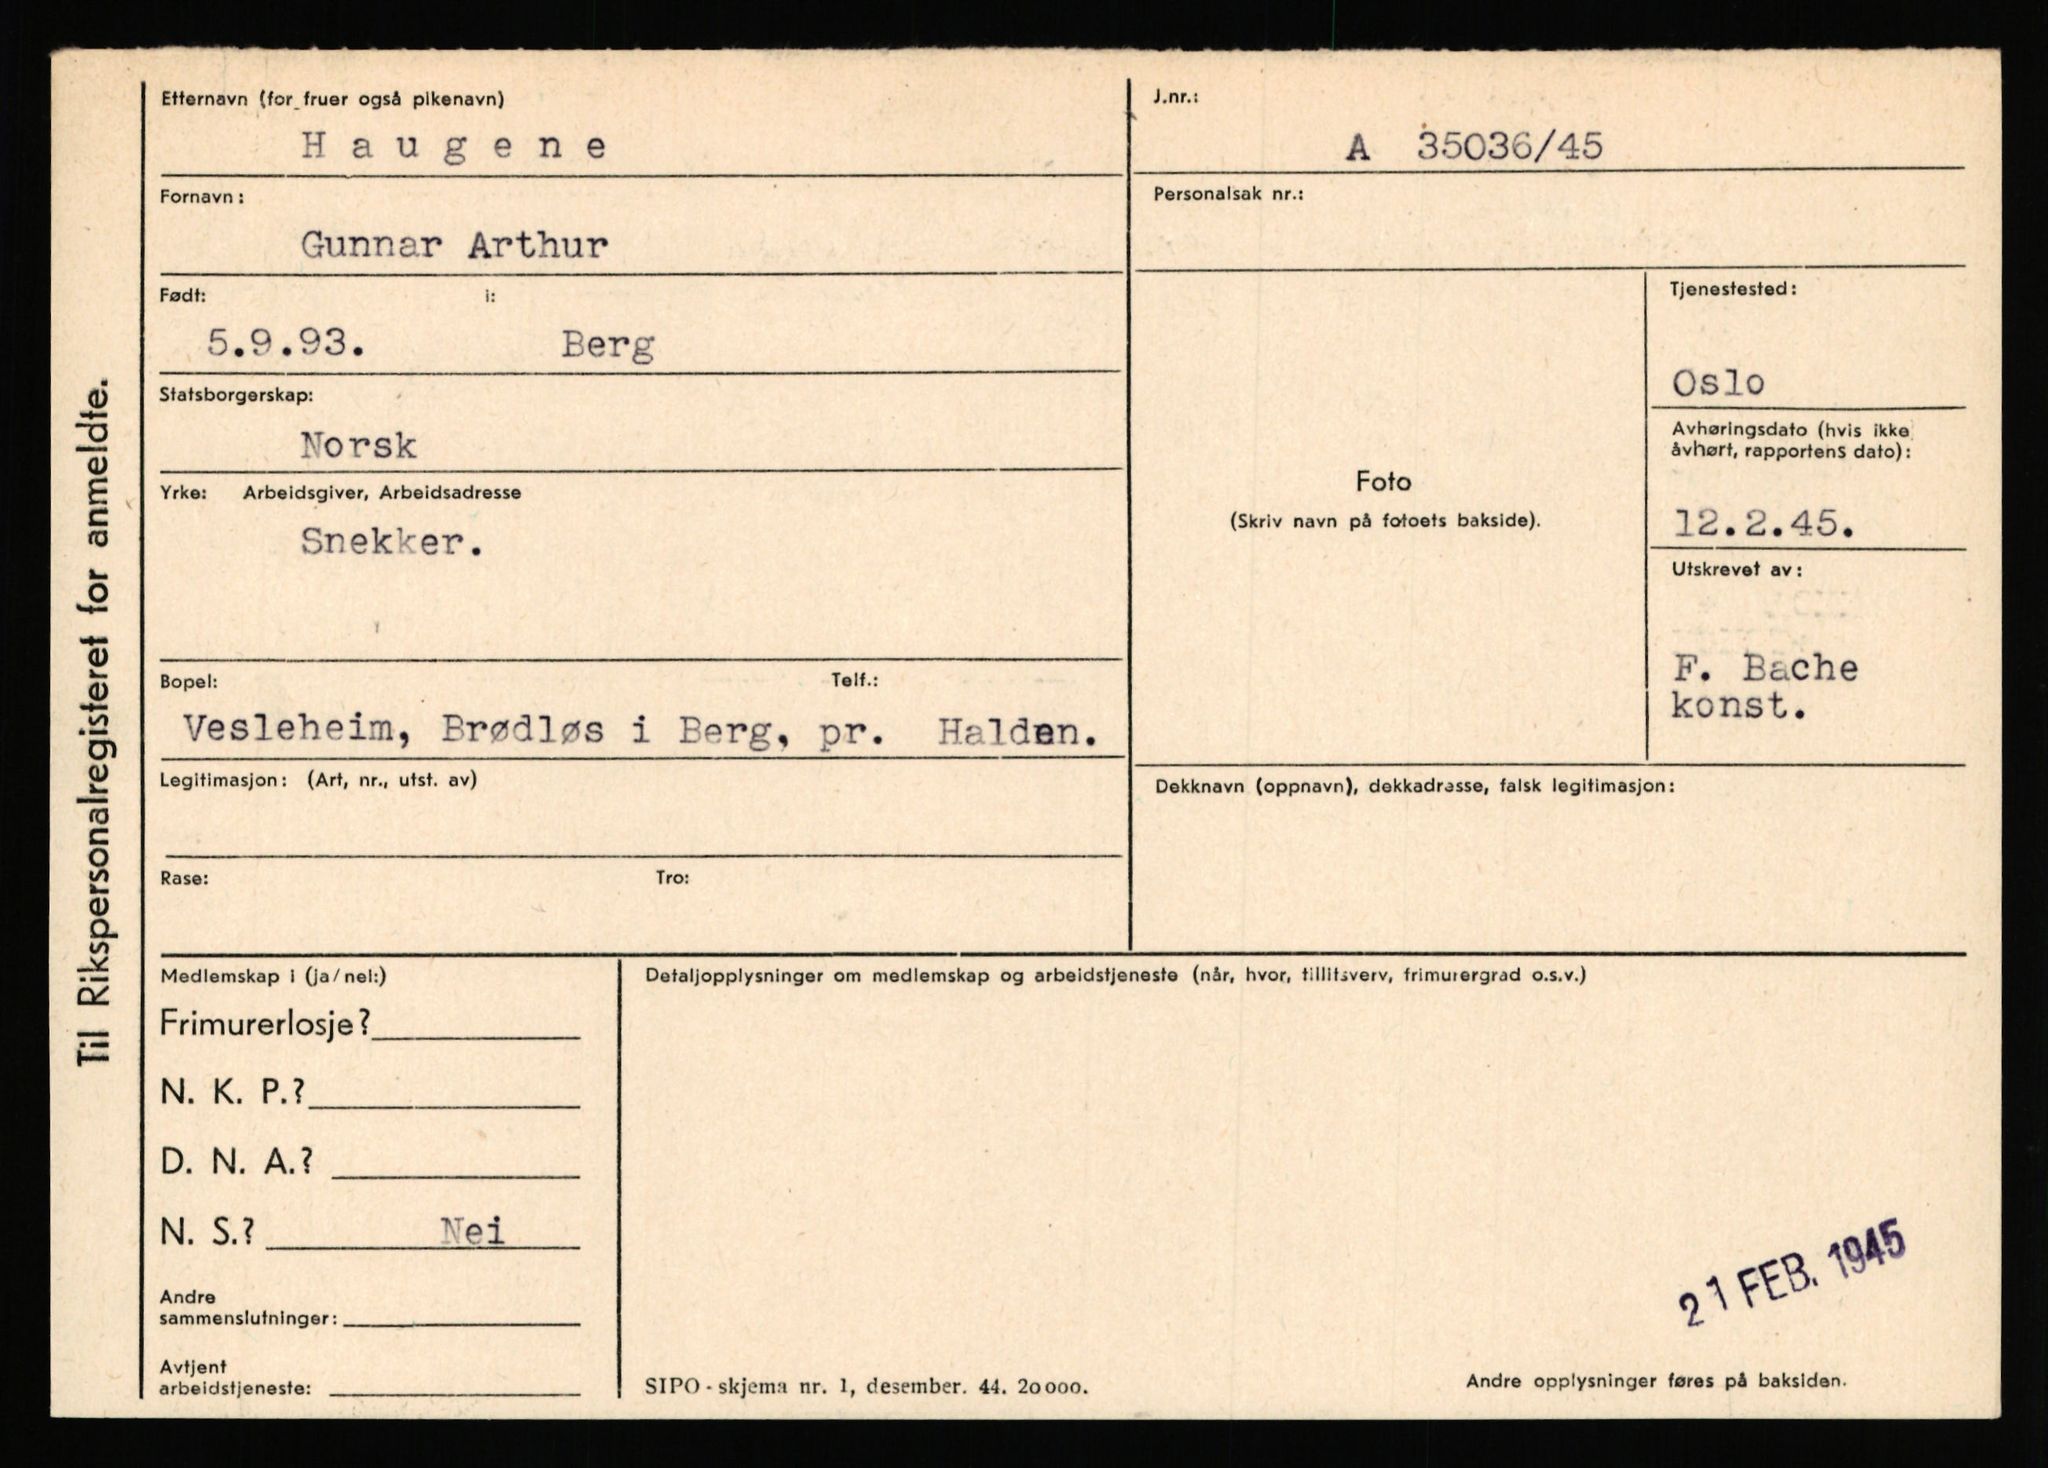 Til Rikspersonalregisteret for anmeldte.
Etternavn (for fruer også pikenavn)
Haugene
Fornavn:
Gunnar Arthur
Født: i:
5.9.93. Berg
Statsborgerskap:
Norsk
Yrke: Arbeidsgiver, Arbeidsadresse
Snekker.
Bopel: Telf.:
Vesleheim, Brødløs i Berg, pr. Halden.
Legitimasjon: (Art, nr., utst. av)
Rase: Tro:
J.nr.:
A 35036/45
Personalsak nr.:
Foto
(Skriv navn på fotoets bakside).
Tjenestested:
Oslo
Avhøringsdato (hvis ikke
avhørt, rapportens dato):
12.2.45.
Utskrevet av:
F. Bache
konst.
Dekknavn (oppnavn), dekkadresse, falsk legitimasjon:
Medlemskap i (ja/nei:)
Frimurerlosje?
N. K. P.?
D. N. A.?
N. S.? Nei
Andre
sammenslutninger:
Avtjent
arbeidstjeneste:
Detaljopplysninger om medlemskap og arbeidstjeneste (når, hvor, tillitsverv, frimurergrad o.s.v.)
21 FEB. 1945
SIPO - skjema nr. 1, desember. 44. 20000.
Andre opplysninger føres på baksiden.